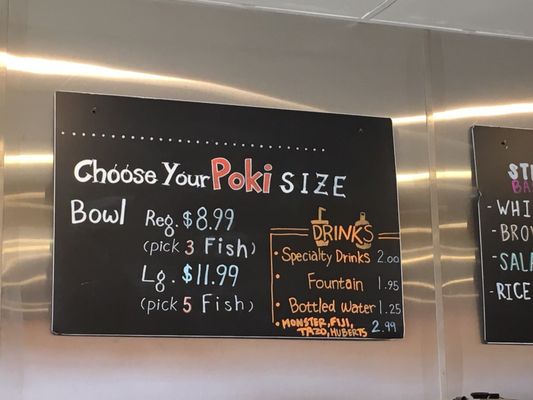 Choose Your Poki SIZE
Bowl Reg. $8.99
(pick 3 Fish)
Lg. $11.99
(pick 5 Fish)
DRINKS
• Specialty Drinks 2.00
• Fountain 1.95
• Bottled Water 1.25
• MONSTER, FIJI,
TAZO, HUBERTS 2.99